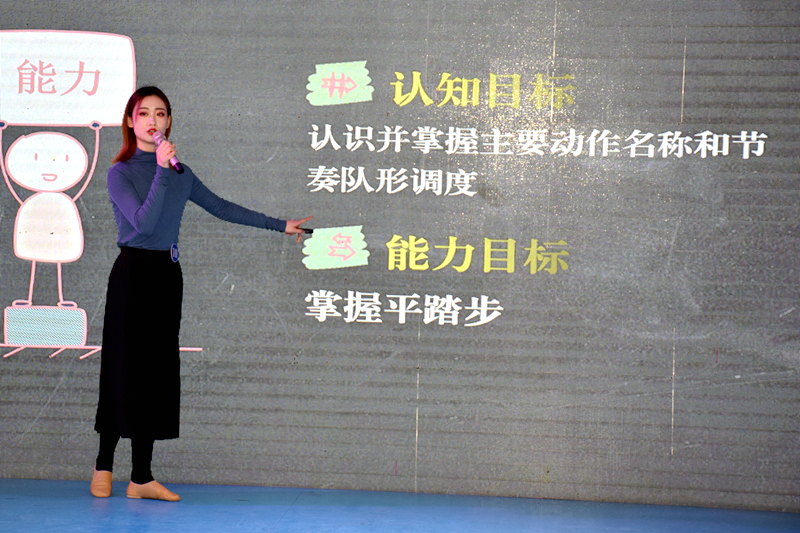 能力
认知目标
认识并掌握主要动作名称和节
奏队形调度
能力目标
掌握平踏步